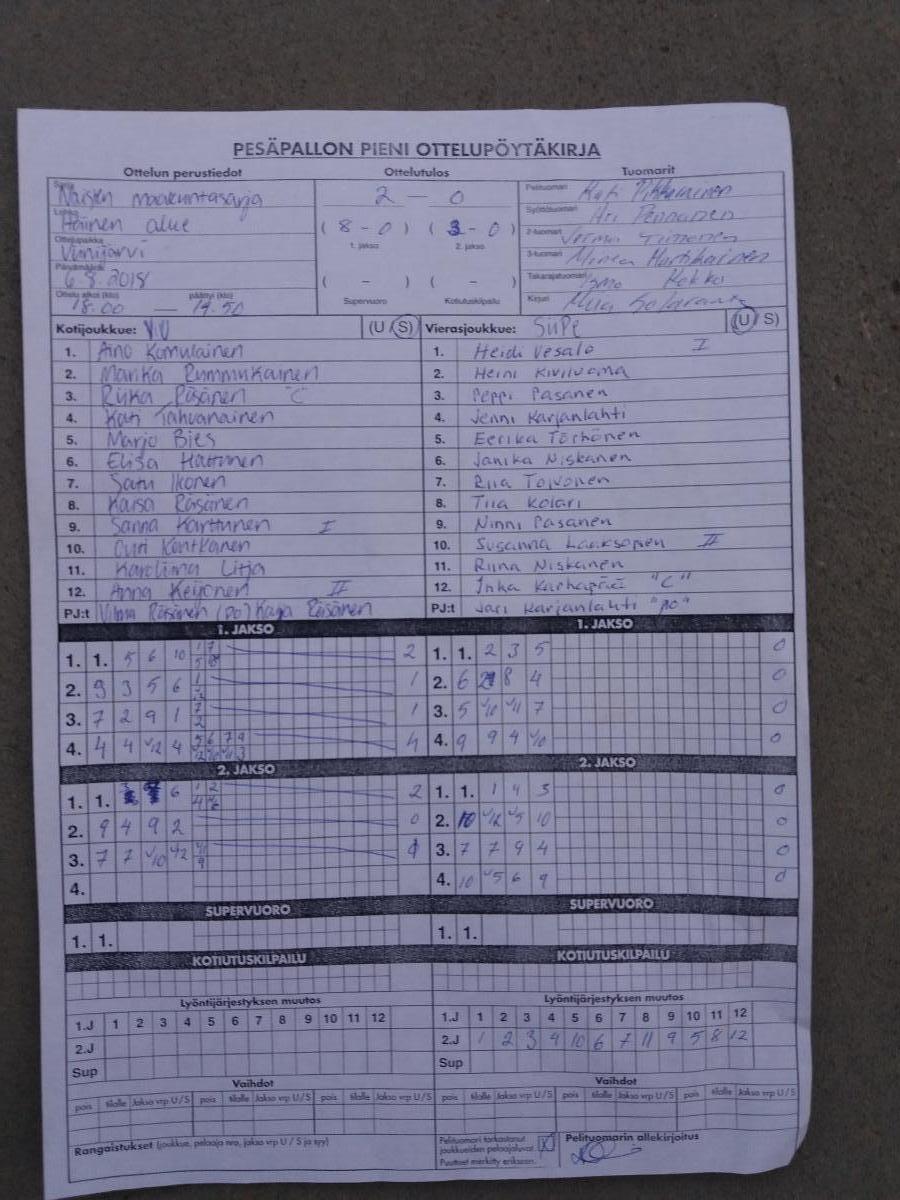 PESÄPALLON PIENI OTTELUPÖYTÄKIRJA
Ottelun perustiedot Ottelutulos Tuomarit
Naisten maakuntasarja 2 — 0 Pelituomari
Itäinen alue ( 8 - 0 ) ( 3 - 0 ) Syöttötuomari Ari Pennanen
Ottelupaikka Viinijärvi 1. jakso 2. jakso 2-tuomari Jorma Timonen
Päivämäärä 6.8.2018 ( - ) ( - ) 3-tuomari Minea Martikainen
Ottelu alkoi (klo) päättyi (klo) Takarajatuomari Ismo Kokko
18.00 — 19.50 Supervuoro Kotiutuskilpailu Kirjuri
Kotijoukkue: ViU (U / S) Vierasjoukkue: SiiPe (U / S)
1. Aino Komulainen 1. Heidi Vesala I
2. Marika Rummukainen 2. Heini Kiviluoma
3. Riika Räsänen "C" 3. Peppi Pasanen
4. Kati Tahvanainen 4. Jenni Karjanlahti
5. Marjo Bies 5. Eerika Törhönen
6. Elisa Hattunen 6. Janika Niskanen
7. Satu Ikonen 7. Riia Toivonen
8. Kaisa Räsänen 8. Tiia Kolari
9. Sanna Karttunen I 9. Ninni Pasanen
10. Outi Kontkanen 10. Susanna Laaksonen II
11. Karoliina Litja 11. Riina Niskanen
12. Anna Keijonen II 12. Inka Karhapää "C"
PJ:t Vilma Räsänen (po) Kaija Räsänen PJ:t Jari Karjanlahti "po"
1. JAKSO 1. JAKSO
1. 1. 5 6 10 1 7 5 8 2 1. 1. 2 3 5 0
2. 9 3 5 6 1 1 2. 6 8 4 0
3. 7 2 9 1 7 2 1 3. 5 v10 v11 7 0
4. 4 4 v12 4 5 6 7 9 4 4. 9 9 4 v10 0
2. JAKSO 2. JAKSO
1. 1. 6 1 2 2 1. 1. 1 4 3 0
2. 9 4 9 2 0 2. 10 v12 v5 10 0
3. 7 7 v10 v12 v11 9 3. 7 7 9 4 0
4. 4. 10 v5 6 9 0
SUPERVUORO SUPERVUORO
1. 1. 1. 1.
KOTIUTUSKILPAILU KOTIUTUSKILPAILU
Lyöntijärjestyksen muutos Lyöntijärjestyksen muutos
1.J 1 2 3 4 5 6 7 8 9 10 11 12 1.J 1 2 3 4 5 6 7 8 9 10 11 12
2.J 2.J 1 2 3 4 10 6 7 11 9 5 8 12
Sup Sup
Vaihdot Vaihdot
pois tilalle Jakso vrp U/S pois tilalle Jakso vrp U/S pois tilalle Jakso vrp U/S pois tilalle Jakso vrp U/S pois tilalle Jakso vrp U/S pois tilalle Jakso vrp U/S
Rangaistukset (joukkue, pelaaja nro, jakso vrp U / S ja syy) Pelituomari tarkastanut joukkueiden pelaajaluvat X Pelituomarin allekirjoitus
Puutteet merkitty erikseen.